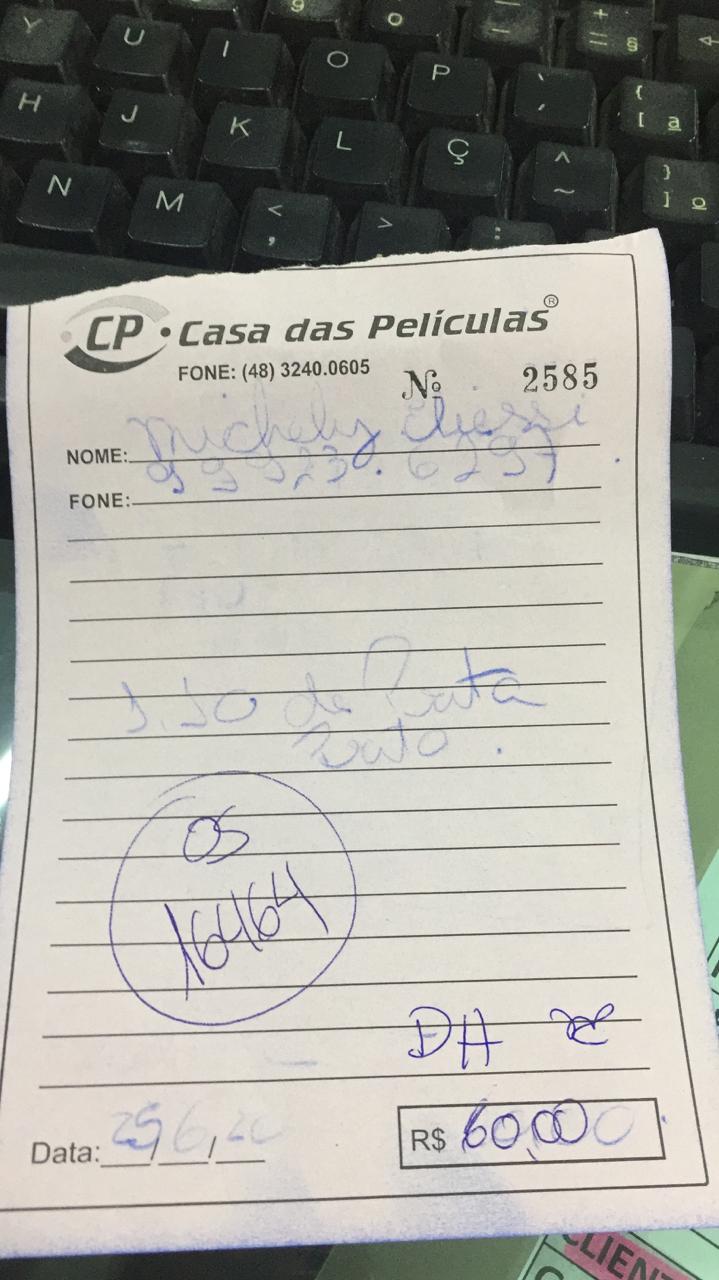 Y U I O P ` {
´ [ ª
H J K L Ç ^ }
~ ] º
N M < > :
,
CP • Casa das Películas ®
FONE: (48) 3240.0605 Nº 2585
NOME: Michely
FONE: 99923.6297
1.50 de Prata
OS
164164
DH
Data: 25/6/20 R$ 60,00
CLIENT